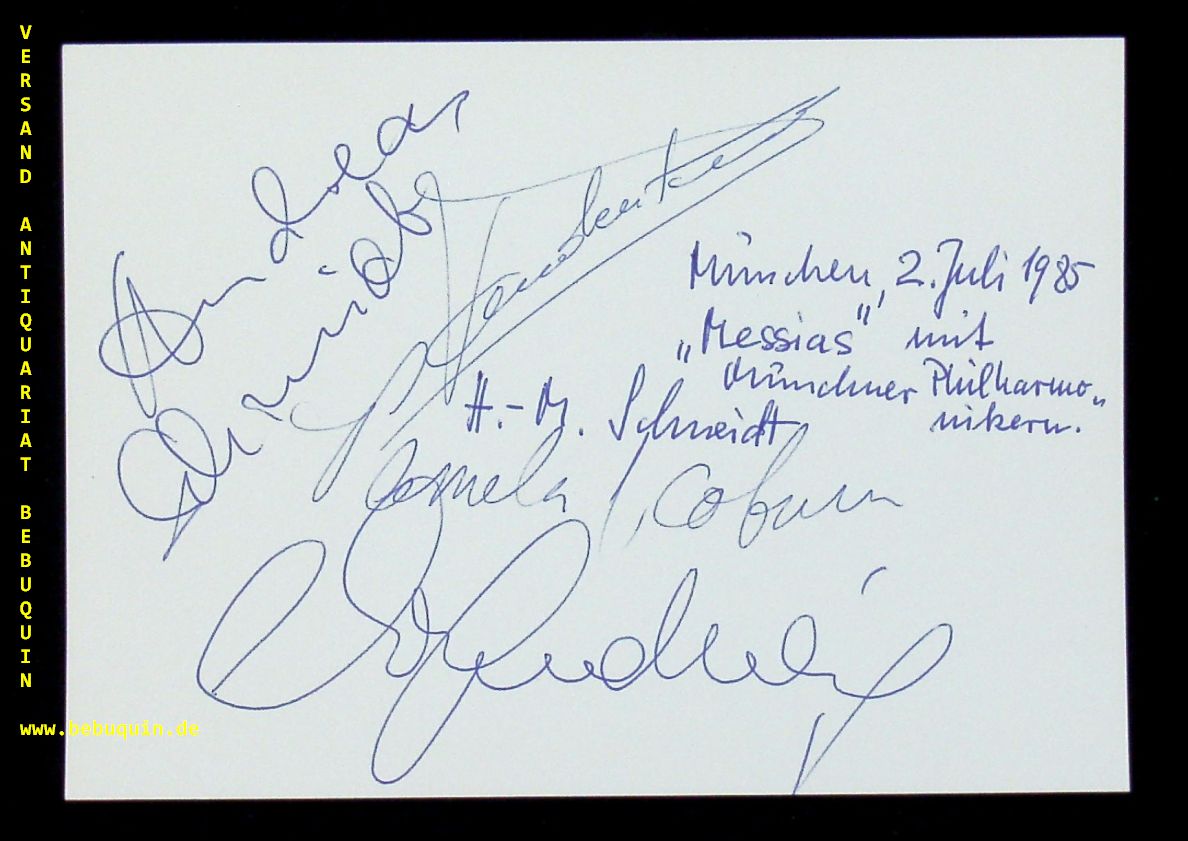 VERSAND ANTIQUARIAT BEBUQUIN
www.bebuquin.de
Andreas
Schmidt
München, 2. Juli 1985
„Messias“ mit
Münchner Philharmo„
nikern.
H.-M. Schneidt
Pamela Coburn